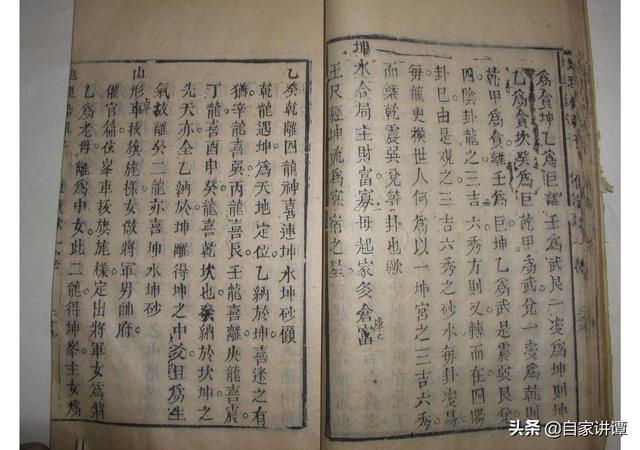 爲貪坤乙爲巨離壬爲武艮一變爲坤則坤
乙爲貪坎癸爲巨乾甲爲武兌一變爲乾則
乾甲爲貪離壬爲巨坤乙爲武是震巽艮兌
四陰卦龍之三吉六秀方則又轉而在四陽
卦巳由是觀之三吉六秀之砂水每卦變易
每龍更換世人何爲以一坤宮之三吉六秀
而槩乾震巽兌等卦也歟
坤水合局主財富寡母起家多倉庫富
玉尺經坤號爲寡宿之星
乙癸乾離四龍神喜連坤水坤砂顧
乾龍遇坤爲天地定位乙納於坤喜逢之有
猶辛龍喜巽丙龍喜艮壬龍喜離庚龍喜震
丁龍喜酉申癸龍喜乾坎也癸納於坎坤之
先天亦全乙納於坤離得坤之中爻且爲生
氣故離癸二龍亦喜坤水坤砂
山形車庫挨旗施樣女做將軍男帥府
催官篇伎峯車挨旗施樣定出將軍女爲將
乙爲老母離爲中女此二龍得坤峯主女秀
頭条 @自家讲谭